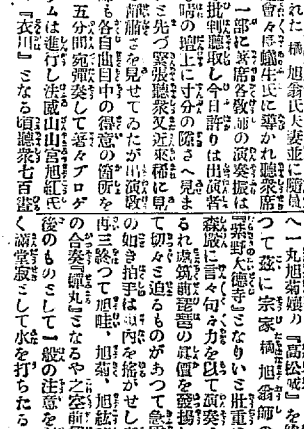 れた橘旭翁氏夫妻並に隨員
會々長蟻生氏に導かれ聽衆席
一部に著席各敎師の演奏振は
批判聽取し今日許りは出演者
晴の壇上に寸分の隙さへ見ま
と先づ緊張聽衆又近來稀に見
靜肅さを見せてゐたが出演敎
も各自曲中の得意の箇所を
五分間宛彈奏して著々プログ
ムは進行し法威山山宮旭紅氏
『衣川』となる頃聽衆七百
へ一丸旭菊孃の『高松城』を
つて玆に宗家橘旭翁師の
『紫野大德寺』となりいと壯重
森嚴に言々句々力を以て演奏
るれ筑前琵琶の眞價を發揚
て切々と迫るものがあつて急
の如き拍手は場內を搖がせし
再三終つて旭畦、旭菊、旭紘
の合奏『蟬丸』となるや之空前
後のものとして一般の注意を
く滿堂寂として水を打ちたる